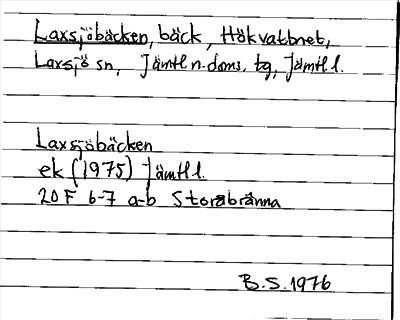 Laxsjöbäcken, bäck, Hökvattnet,
Laxsjö sn, Jämtl n. doms. tg, Jämtl l.
Laxsjöbäcken
ek (1975) Jämtl l.
20 F 6-7 a-b Storabränna
B.S. 1976